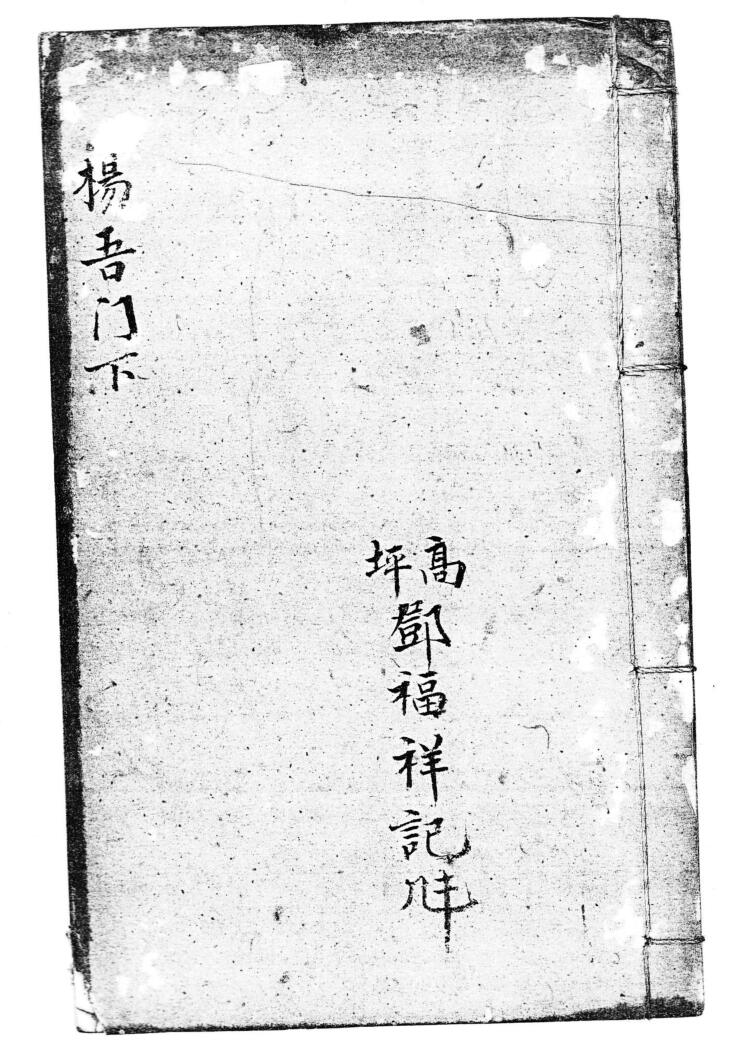 高坪
鄧福祥記
楊吾门下